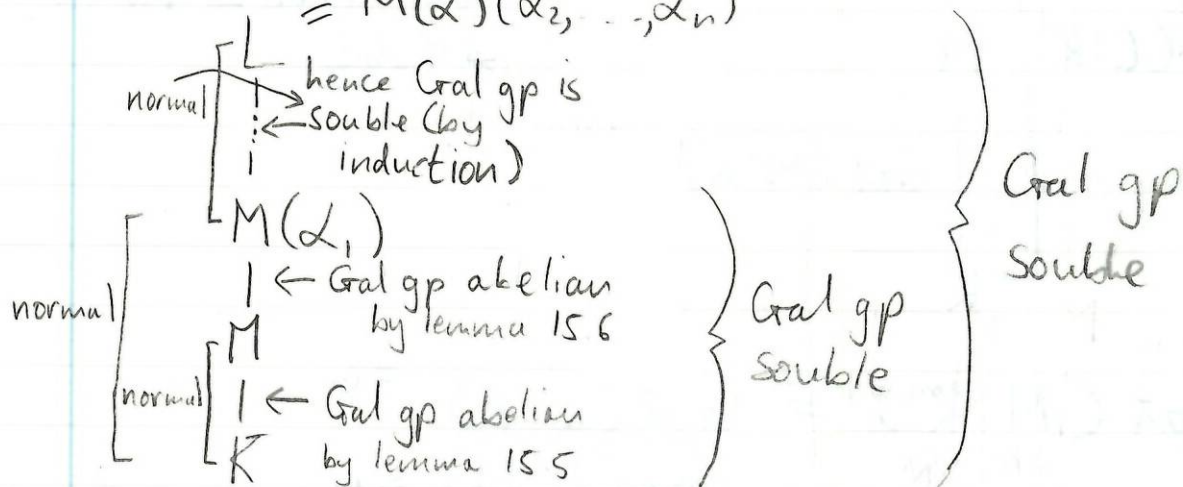 = M(α)(α₂, ..., αₙ)
L
normal
hence Gal gp is
← souble (by
induction)
M(α₁)
← Gal gp abelian
by lemma 15.6
normal
M
normal
← Gal gp abelian
by lemma 15.5
K
Gal gp
souble
Gal gp
souble